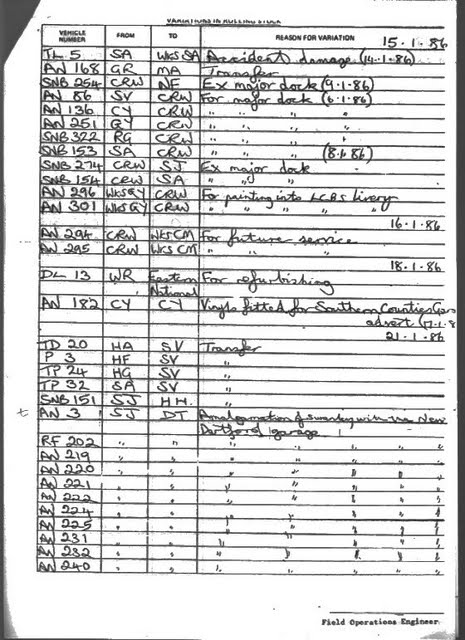 VARIATIONS IN ROLLING STOCK
VEHICLE NUMBER FROM TO REASON FOR VARIATION 15.1.86
TL 5 SA WKS SA Accident damage (14.1.86)
AN 168 GR MA Transfer
SNB 254 CRW NF Ex major dock (9.1.86)
AN 86 SV CRW For major dock (6.1.86)
AN 136 CY CRW " " " "
AN 251 GY CRW " " " "
SNB 322 RG CRW " " " "
SNB 153 SA CRW " " " (8.1.86)
SNB 274 CRW SJ Ex major dock
SNB 154 CRW SA " " "
AN 296 WKS GY CRW For painting into LCBS livery
AN 301 WKS GY CRW " " " " "
16.1.86
AN 294 CRW WKS CM For future service
AN 295 CRW WKS CM " " "
18.1.86
DL 13 WR Eastern National For refurbishing
AN 182 CY CY Vinyls fitted for Southern Counties Gas
advert (17.1.8
21.1.86
TD 20 HA SV Transfer
P 3 HF SV "
TP 24 HG SV "
TP 32 SA SV "
SNB 151 SJ HH. "
t AN 3 SJ DT Amalgamation of Swanley with the New
Dartford garage
RF 202 " " " " " "
AN 219 " " " " " "
AN 220 " " " " " "
AN 221 " " " " " "
AN 222 " " " " " "
AN 224 " " " " " "
AN 225 " " " " " "
AN 231 " " " " " "
AN 232 " " " " " "
AN 240 " " " " " "
Field Operations Engineer